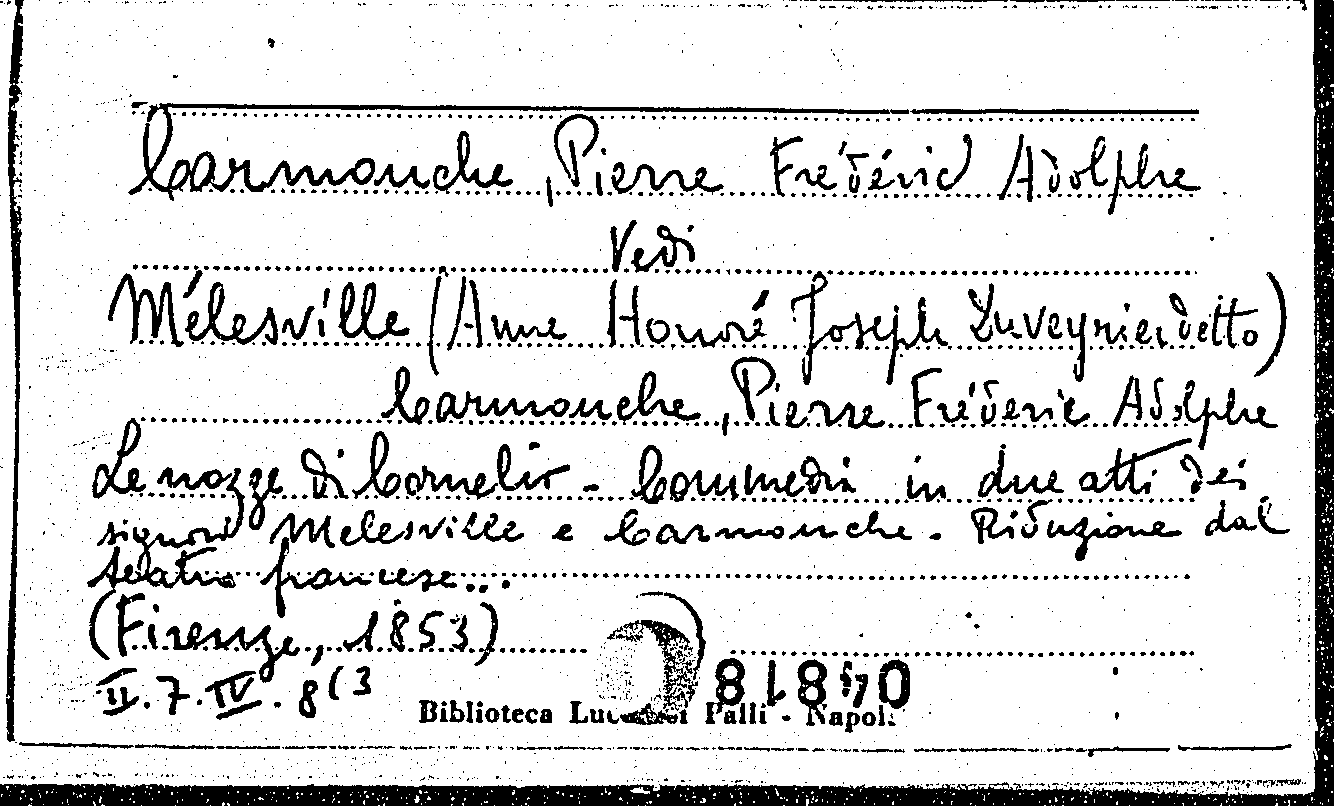 Carmouche, Pierre Frédéric Adolphe
Vedi
Mélesville (Anne Honoré Joseph Duveyrier detto)
Carmouche, Pierre Fréderic Adolphe
Le nozze di Cornelio - Commedia in due atti dei
signori Melesville e Carmouche. Riduzione dal
teatro francese...
(Firenze, 1853)
II. 7. IV. 8(3
Biblioteca Palli - Napoli